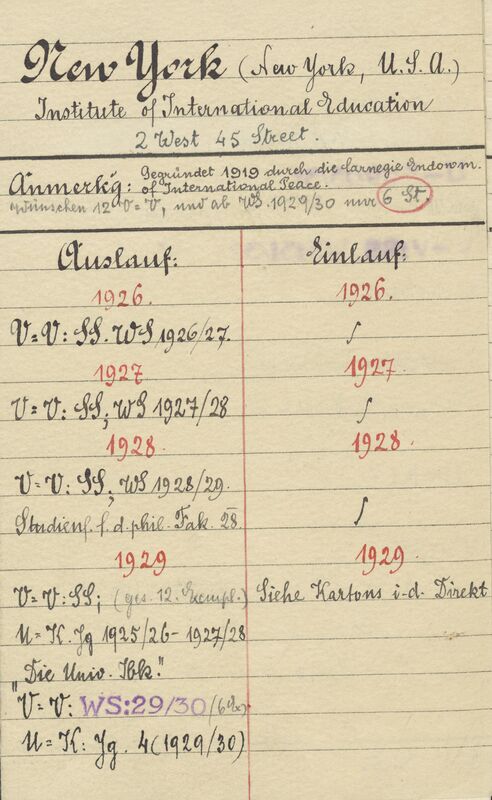 New York (New York, U.S.A.)
Institute of International Education
2 West 45 Street.
Anmerkg: Gegründet 1919 durch die Carnegie Endowm.
of International Peace.
Wünschen 12 V=V, und ab WS. 1929/30 nur 6 St.
Auslauf: Einlauf:
1926. 1926.
V=V: SS. WS 1926/27. ∫
1927 1927.
V=V: SS; WS 1927/28 ∫
1928. 1928.
V=V: SS; WS 1928/29.
Studienf. f. d. phil. Fak. 28. ∫
1929 1929.
V=V: SS; (ges. 12. Exempl.) Siehe Kartons i. d. Direkt
U=K. Jg 1925/26 - 1927/28
"Die Univ. Ibk."
V=V: WS:29/30 (6 Ex)
U=K: Jg. 4 (1929/30)